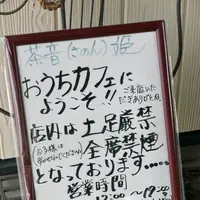 茶音(さのん)姫
おうちカフェに
ようこそ!!
ご来店いた
だきありがとう
店内は土足厳禁
お子様は
全席禁煙
となっております.....
営業時間